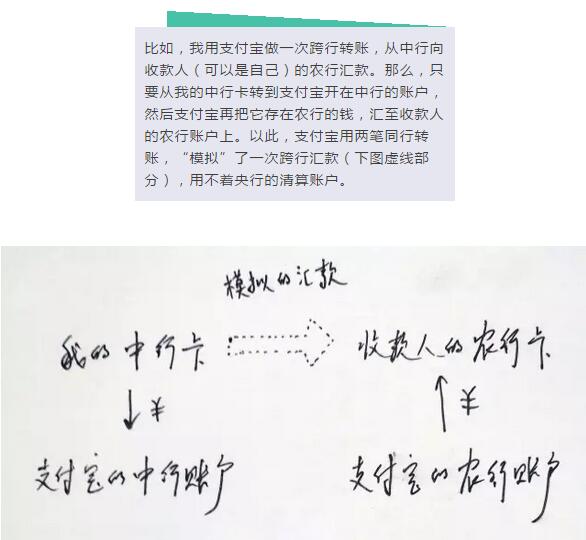 比如，我用支付宝做一次跨行转账，从中行向
收款人（可以是自己）的农行汇款。那么，只
要从我的中行卡转到支付宝开在中行的账户，
然后支付宝再把它存在农行的钱，汇至收款人
的农行账户上。以此，支付宝用两笔同行转
账，“模拟”了一次跨行汇款（下图虚线部
分），用不着央行的清算账户。
模拟的汇款
我的中行卡
收款人的农行卡
¥
¥
支付宝的中行账户
支付宝的农行账户